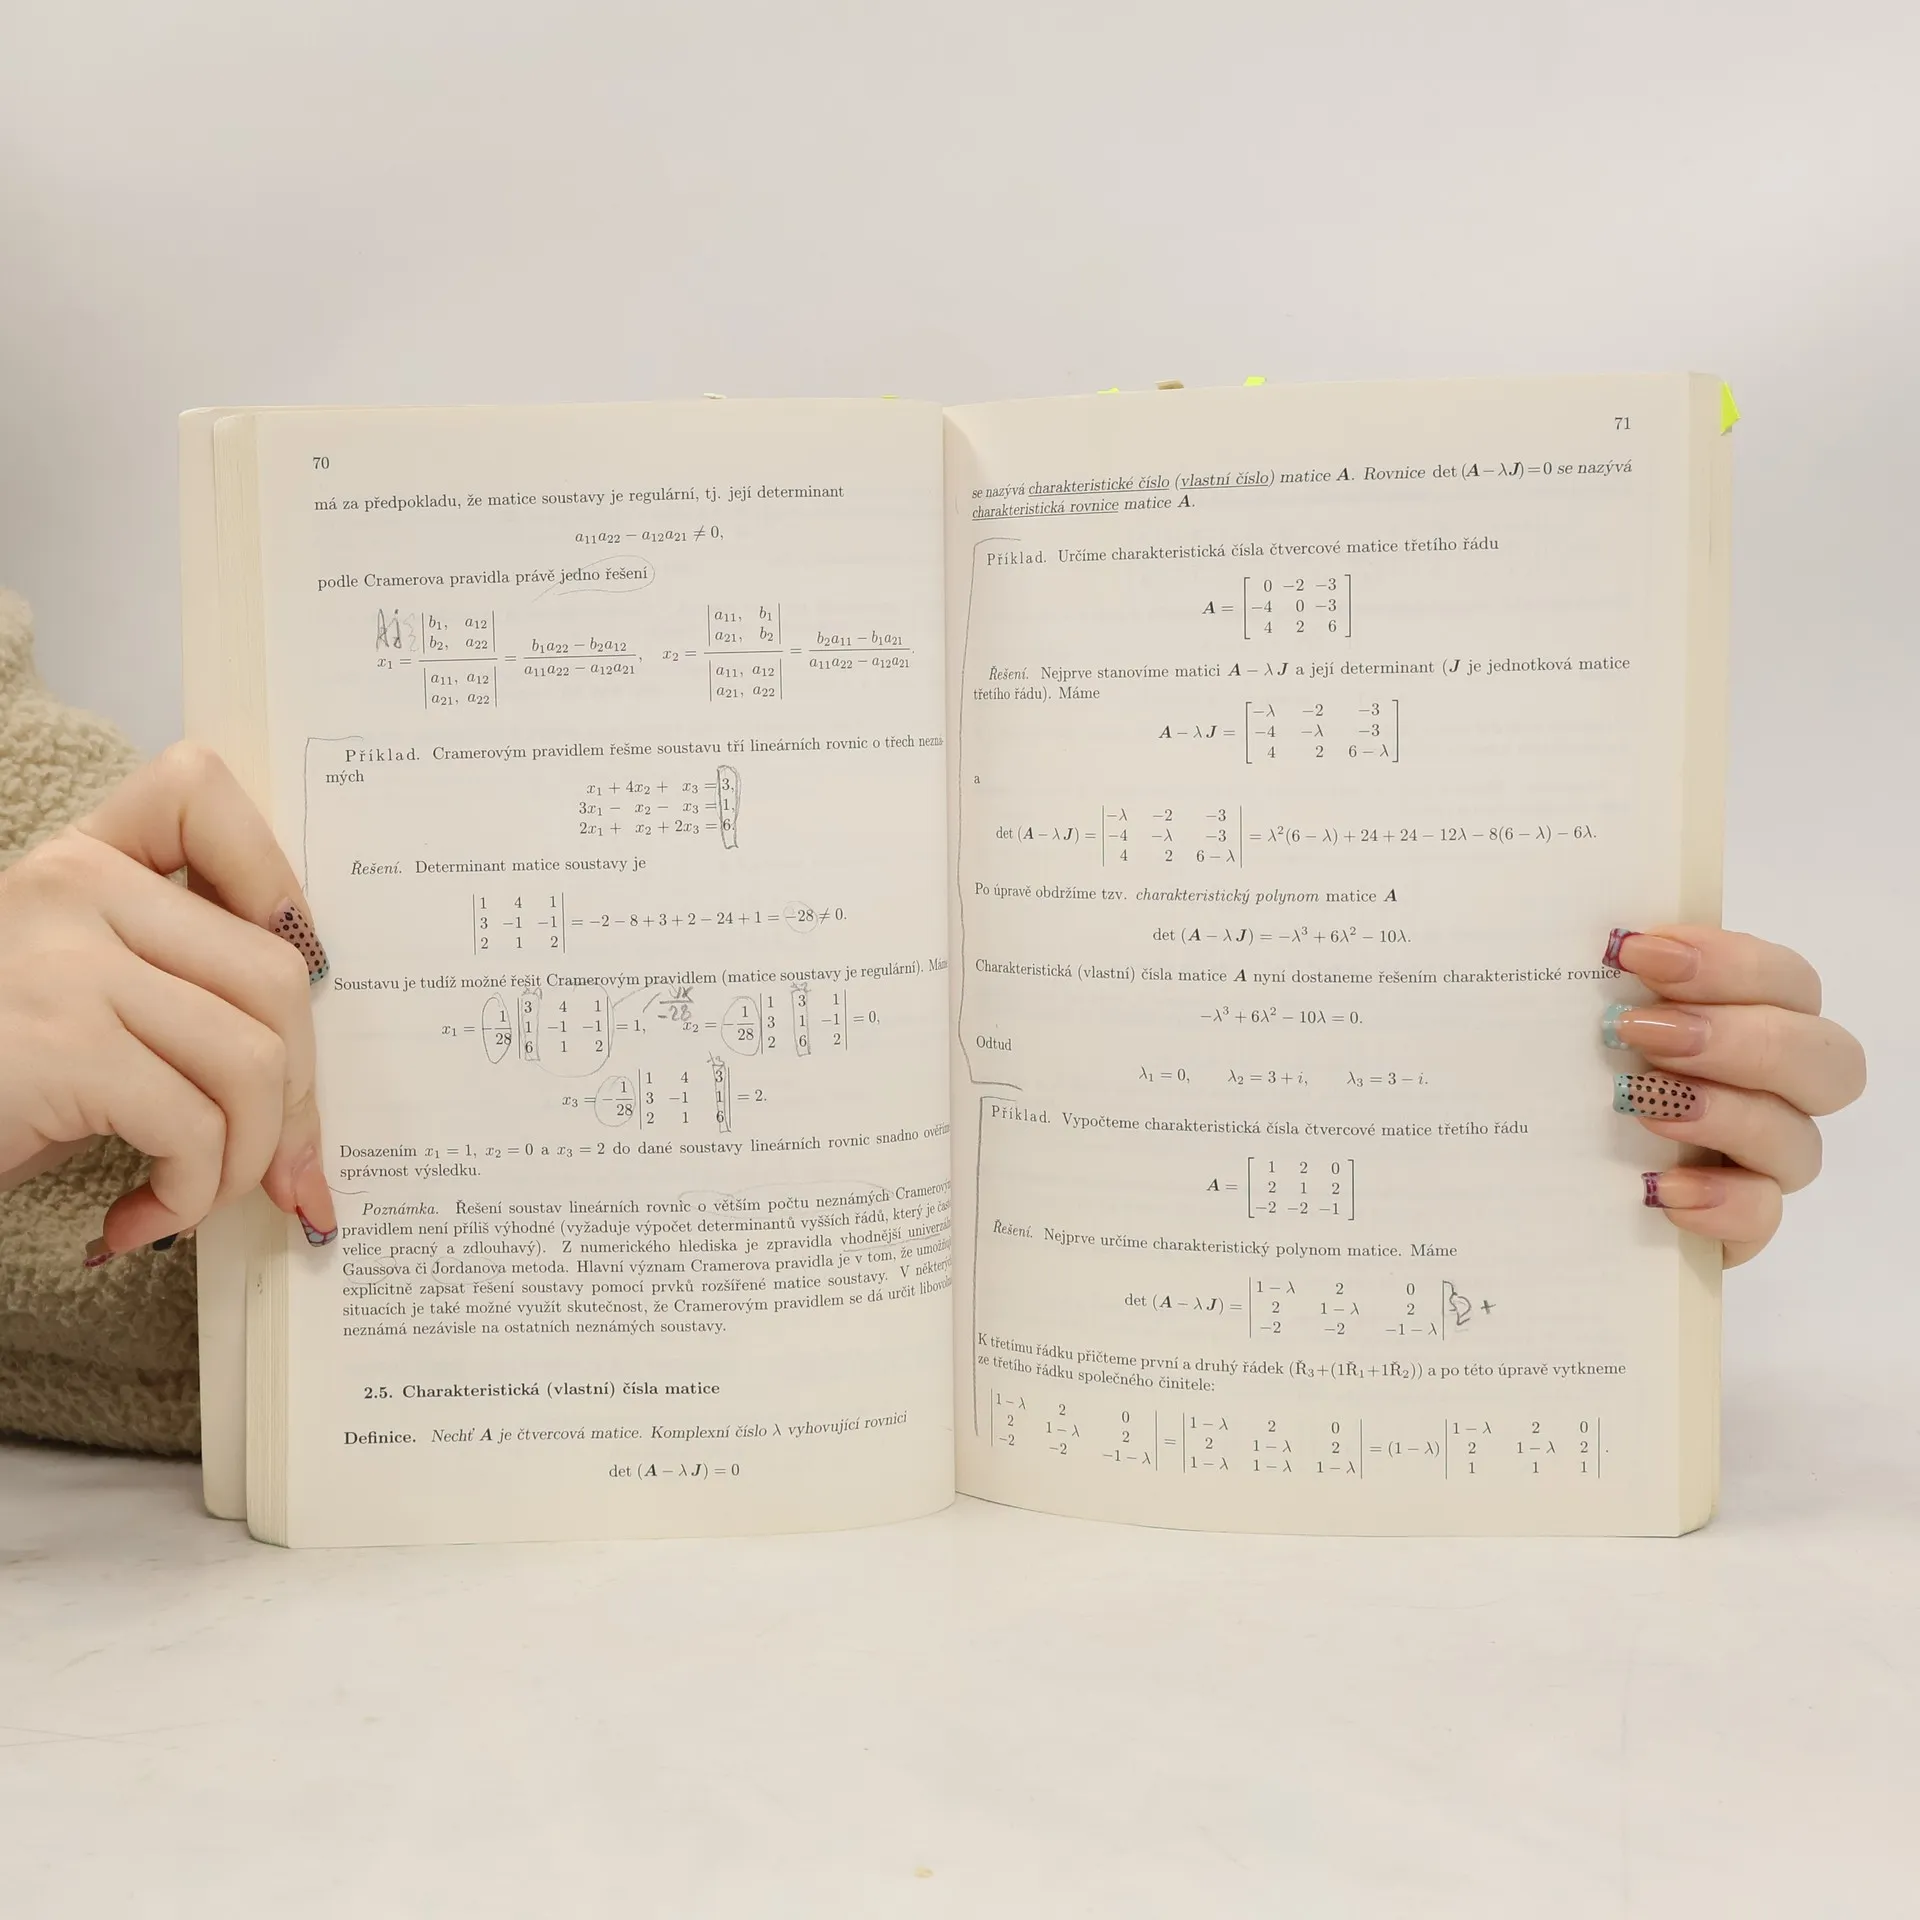 70
má za předpokladu, že matice soustavy je regulární, tj. její determinant
a11a22 − a12a21 ≠ 0,
podle Cramerova pravidla právě jedno řešení
x1 = |b1, a12; b2, a22| / |a11, a12; a21, a22| = (b1a22 − b2a12) / (a11a22 − a12a21), x2 = |a11, b1; a21, b2| / |a11, a12; a21, a22| = (b2a11 − b1a21) / (a11a22 − a12a21).
Příklad. Cramerovým pravidlem řešme soustavu tří lineárních rovnic o třech nezná-
mých
x1 + 4x2 + x3 = 3,
3x1 − x2 − x3 = 1,
2x1 + x2 + 2x3 = 6.
Řešení. Determinant matice soustavy je
|1 4 1; 3 −1 −1; 2 1 2| = −2 − 8 + 3 + 2 − 24 + 1 = −28 ≠ 0.
Soustavu je tudíž možné řešit Cramerovým pravidlem (matice soustavy je regulární).
x1 = −1/28 |3 4 1; 1 −1 −1; 6 1 2| = 1, x2 = −1/28 |1 3 1; 3 1 −1; 2 6 2| = 0,
x3 = −1/28 |1 4 3; 3 −1 1; 2 1 6| = 2.
Dosazením x1 = 1, x2 = 0 a x3 = 2 do dané soustavy lineárních rovnic snadno
správnost výsledku.
Poznámka. Řešení soustav lineárních rovnic o větším počtu neznámých
pravidlem není příliš výhodné (vyžaduje výpočet determinantů vyšších řádů, který je
velice pracný a zdlouhavý). Z numerického hlediska je zpravidla vhodnější
Gaussova či Jordanova metoda. Hlavní význam Cramerova pravidla je v tom, že
explicitně zapsat řešení soustavy pomocí prvků rozšířené matice soustavy. V
situacích je také možné využít skutečnost, že Cramerovým pravidlem se dá určit
neznámá nezávisle na ostatních neznámých soustavy.
2.5. Charakteristická (vlastní) čísla matice
Definice. Nechť A je čtvercová matice. Komplexní číslo λ vyhovující rovnici
det (A − λJ) = 0
71
se nazývá charakteristické číslo (vlastní číslo) matice A. Rovnice det (A − λJ)=0 se nazývá
charakteristická rovnice matice A.
Příklad. Určíme charakteristická čísla čtvercové matice třetího řádu
A = [0 −2 −3; −4 0 −3; 4 2 6]
Řešení. Nejprve stanovíme matici A − λJ a její determinant (J je jednotková matice
třetího řádu). Máme
A − λJ = [−λ −2 −3; −4 −λ −3; 4 2 6 − λ]
a
det (A − λJ) = |−λ −2 −3; −4 −λ −3; 4 2 6 − λ| = λ²(6 − λ) + 24 + 24 − 12λ − 8(6 − λ) − 6λ.
Po úpravě obdržíme tzv. charakteristický polynom matice A
det (A − λJ) = −λ³ + 6λ² − 10λ.
Charakteristická (vlastní) čísla matice A nyní dostaneme řešením charakteristické rovnice
−λ³ + 6λ² − 10λ = 0.
Odtud
λ1 = 0, λ2 = 3 + i, λ3 = 3 − i.
Příklad. Vypočteme charakteristická čísla čtvercové matice třetího řádu
A = [1 2 0; 2 1 2; −2 −2 −1]
Řešení. Nejprve určíme charakteristický polynom matice. Máme
det (A − λJ) = |1 − λ 2 0; 2 1 − λ 2; −2 −2 −1 − λ| +
K třetímu řádku přičteme první a druhý řádek (Ř3+(1Ř1+1Ř2)) a po této úpravě vytkneme
ze třetího řádku společného činitele:
|1 − λ 2 0; 2 1 − λ 2; −2 −2 −1 − λ| = |1 − λ 2 0; 2 1 − λ 2; 1 − λ 1 − λ 1 − λ| = (1 − λ) |1 − λ 2 0; 2 1 − λ 2; 1 1 1|.